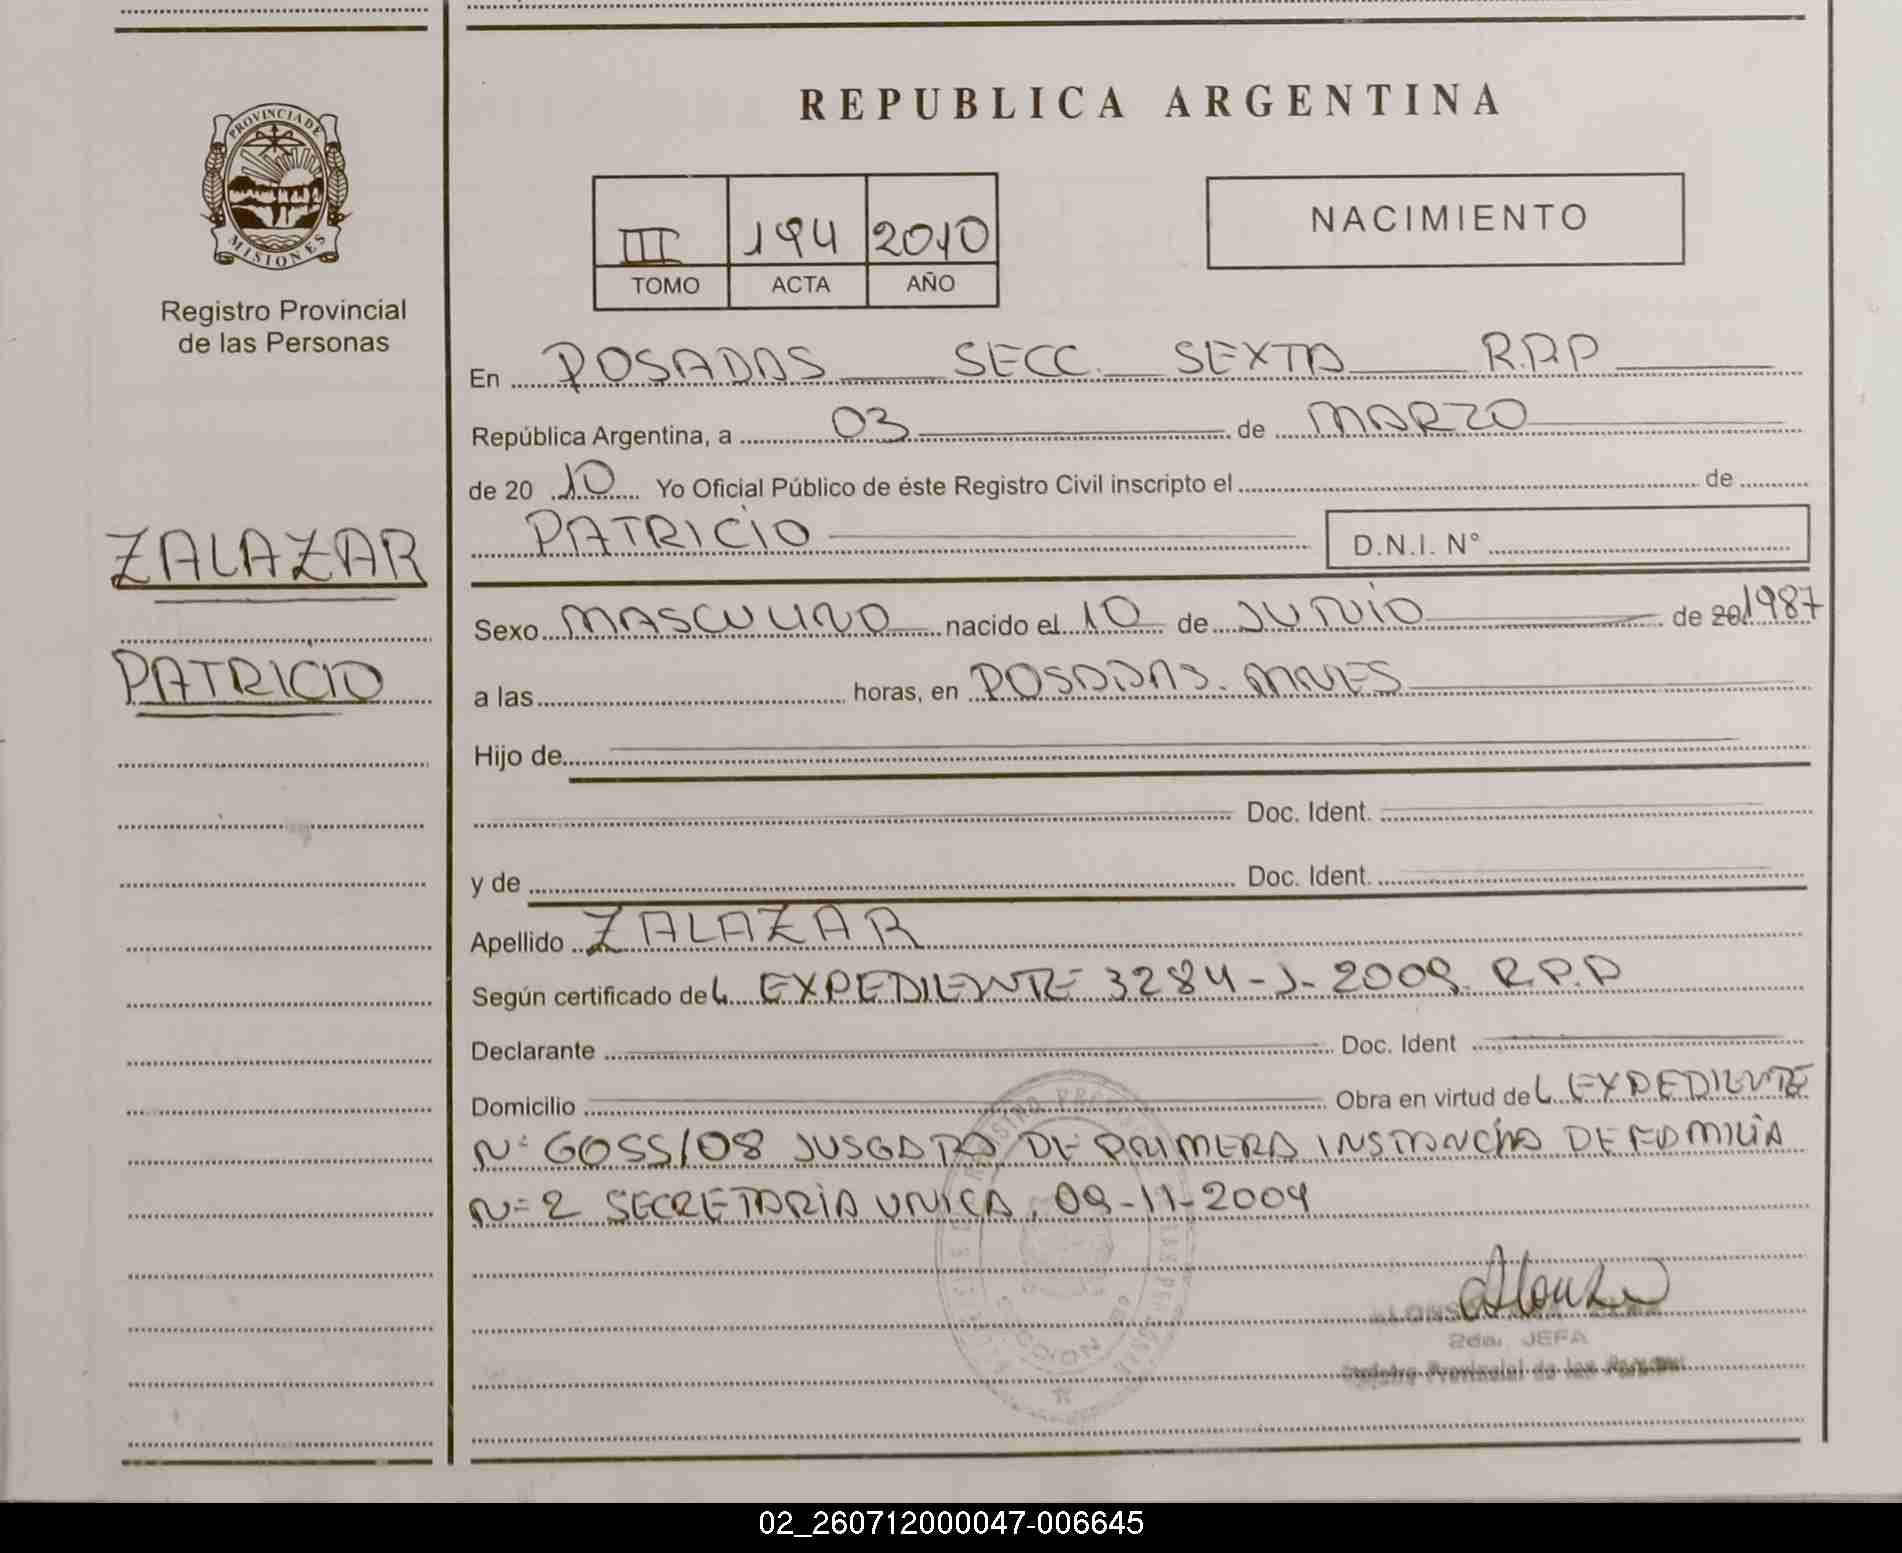 PROVINCIA DE
MISIONES
Registro Provincial
de las Personas
ZALAZAR
PATRICIO
REPUBLICA ARGENTINA
III 194 2010
TOMO ACTA AÑO
NACIMIENTO
En POSADAS SECC. SEXTA R.P.P
República Argentina, a 03 de MARZO
de 20 10 Yo Oficial Público de éste Registro Civil inscripto el de
PATRICIO D.N.I. N°
Sexo MASCULINO nacido el 10 de JUNIO de 20 1987
a las horas, en POSADAS. MNES
Hijo de
Doc. Ident.
y de Doc. Ident.
Apellido ZALAZAR
Según certificado del EXPEDIENTE 3284-J-2009 R.P.P
Declarante Doc. Ident
Domicilio Obra en virtud del EXPEDIENTE
N° 6055/08 JUSGADO DE PRIMERA INSTANCIA DE FAMILIA
N=2 SECRETARIA UNICA, 09-11-2009
2da. JEFA
Registro Provincial de las Personas
02_260712000047-006645